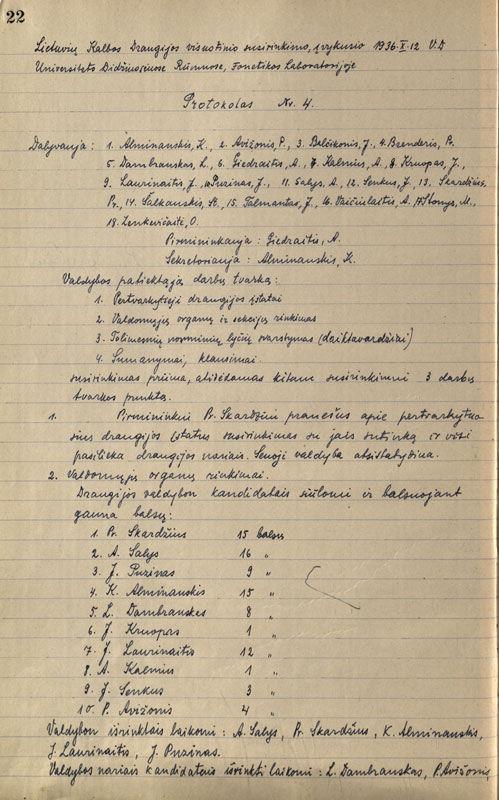 22
Lietuvių Kalbos Draugijos visuotinio susirinkimo, įvykusio 1936.X.12 V.D
Universiteto Didžiuosiuose Rūmuose, Fonetikos Laboratorijoje
Protokolas Nr. 4.
Dalyvauja: 1. Alminauskis, K., 2. Avižonis, P., 3. Balčikonis, J., 4. Brenderis, Pr.
5. Dambrauskas, L., 6. Giedraitis, A., 7. Kalnius, A., 8. Kruopas, J.,
9. Laurinaitis, J., 10. Puzinas, J., 11. Salys, A., 12. Senkus, J., 13. Skardžius,
Pr., 14. Šalkauskis, K., 15. Talmantas, J., 16. Vaičiulaitis, A. 17. Stonys, M.,
18. Zenkevičaitė, O.
Pirmininkauja: Giedraitis, A.
Sekretoriauja: Alminauskis, K.
Valdybos patiektąją darbų tvarką:
1. Pertvarkytieji draugijos įstatai
2. Valdomųjų organų ir sekcijų rinkimas
3. Tolimesnių norminių lyčių svarstymas (daiktavardžiai)
4. Sumanymai, klausimai.
susirinkimas priima, atidėdamas kitam susirinkimui 3 darbų
tvarkos punktą.
1. Pirmininkui Pr. Skardžiui pranešus apie pertvarkytuo-
sius draugijos įstatus susirinkimas su jais sutinka ir visi
pasilieka draugijos nariais. Senoji valdyba atsistatydina.
2. Valdomųjų organų rinkimai.
Draugijos valdybon kandidatais siūlomi ir balsuojant
gauna balsų:
1. Pr. Skardžius 15 balsų
2. A. Salys 16 „
3. J. Puzinas 9 „
4. K. Alminauskis 15 „
5. L. Dambrauskas 8 „
6. J. Kruopas 1 „
7. J. Laurinaitis 12 „
8. A. Kalnius 1 „
9. J. Senkus 3 „
10. P. Avižonis 4 „
Valdybon išrinktais laikomi: A. Salys, Pr. Skardžius, K. Alminauskis,
J. Laurinaitis, J. Puzinas.
Valdybos nariais kandidatais išrinkti laikomi: L. Dambrauskas, P. Avižonis,